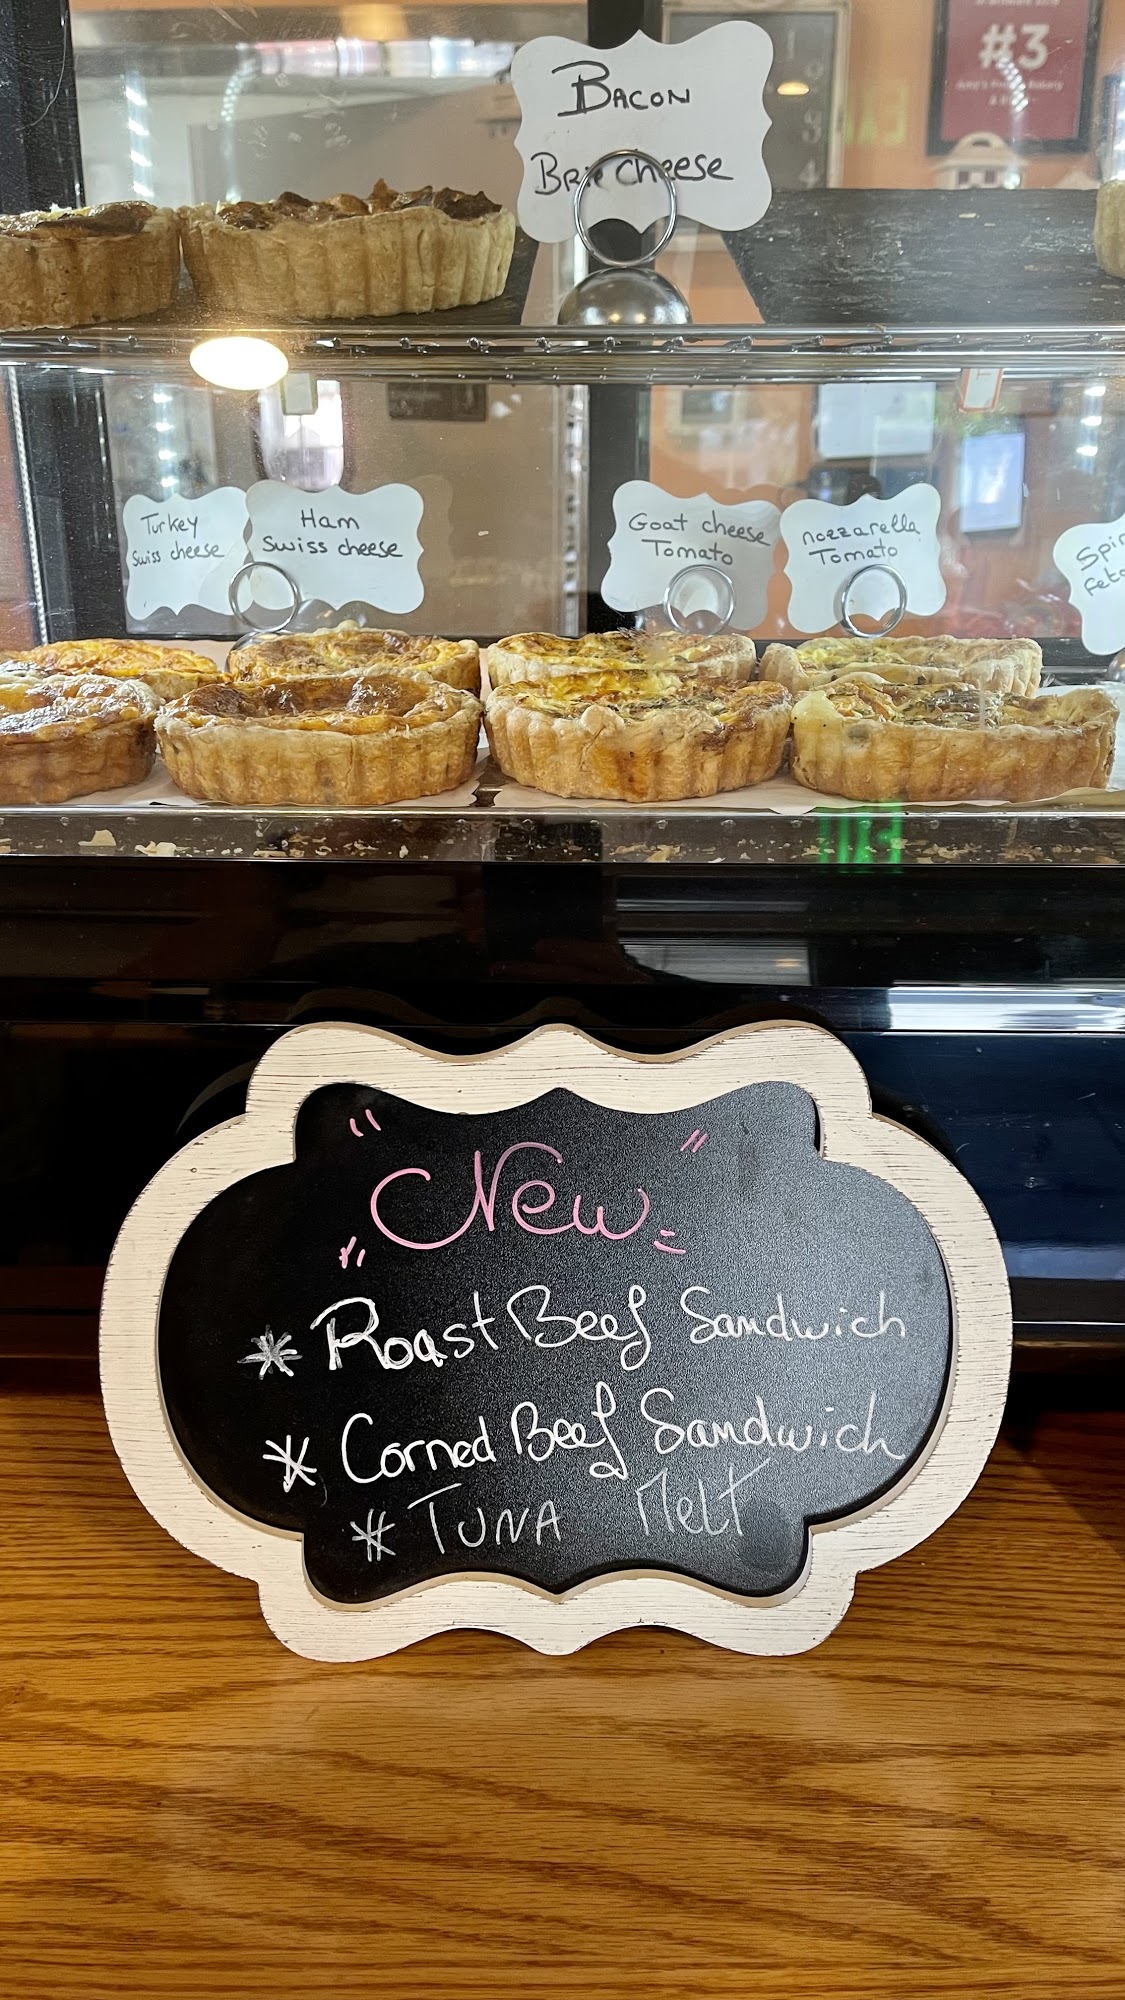 #3
BACON
Brie Cheese
Turkey
Swiss cheese
Ham
Swiss cheese
Goat cheese
Tomato
nozzarella
Tomato
New
* Roast Beef Sandwich
* Corned Beef Sandwich
* TUNA MELT